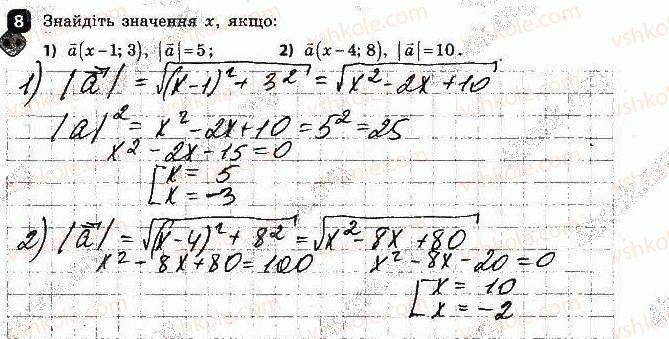 8 Знайдіть значення x, якщо:
1) a̅(x−1; 3), |a̅|=5; 2) a̅(x−4; 8), |a̅|=10.
1) |a⃗| = √((x−1)² + 3²) = √(x² − 2x + 10)
|a|² = x² − 2x + 10 = 5² = 25
x² − 2x − 15 = 0
[x = 5
x = −3
2) |a⃗| = √((x−4)² + 8²) = √(x² − 8x + 80)
x² − 8x + 80 = 100 x² − 8x − 20 = 0
[x = 10
x = −2